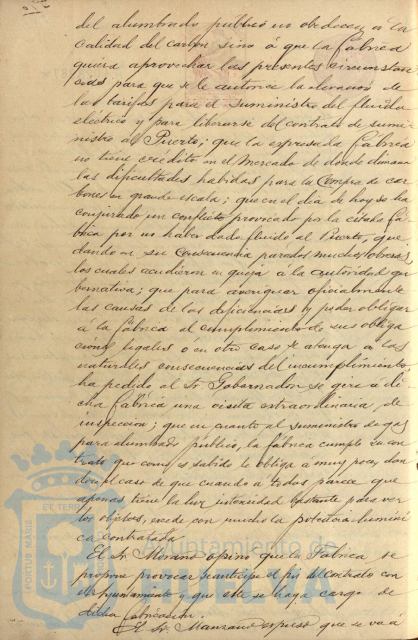 del alumbrado publico no obedecen a la
calidad del carbon sino á que la fábrica
quiera aprovechar las presentes circunstan
cias para que se le autorice la elevacion de
las tarifas para el suministro del fluido
eléctrico y para librarse del contrato de sumi
nistro al Puerto; que la expresada fabrica
no tiene crédito en el mercado de donde dimanan
las dificultades habidas para la compra de car
bones en grande escala; que en el dia de hoy se ha
conjurado un conflicto provocado por la citada fá
brica por no haber dado fluido al Puerto, que
dando en su consecuencia parados muchos obreros
los cuales acudieron en queja a la autoridad gu
bernativa; que para averiguar oficialmente
las causas de las deficiencias y poder obligar
á la fábrica al cumplimiento de sus obliga
ciones legales ó en otro caso se atenga á las
naturales consecuencias del incumplimiento,
ha pedido al Sr. Gobernador se gire á di
cha fábrica una visita extraordinaria de
inspeccion; que en cuanto al suministro de gas
para alumbrado público, la fábrica cumple su con
trato que como es sabido le obliga á muy poco, dan
dose el caso de que cuando a todos parece que
apenas tiene la luz intensidad bastante para ver
los objetos, excede con mucho la potencia lumíni
ca contratada.
El Sr. Morano opinó que la Fabrica se
propone provocar se anticipe el fin del contrato con
el Ayuntamiento y que este se haga cargo de
dicha fabricacion.
El Sr. Manzano expresó que se va á
PORTUS MARIS
ET TERRAE
Ayuntamiento de
HUELVA